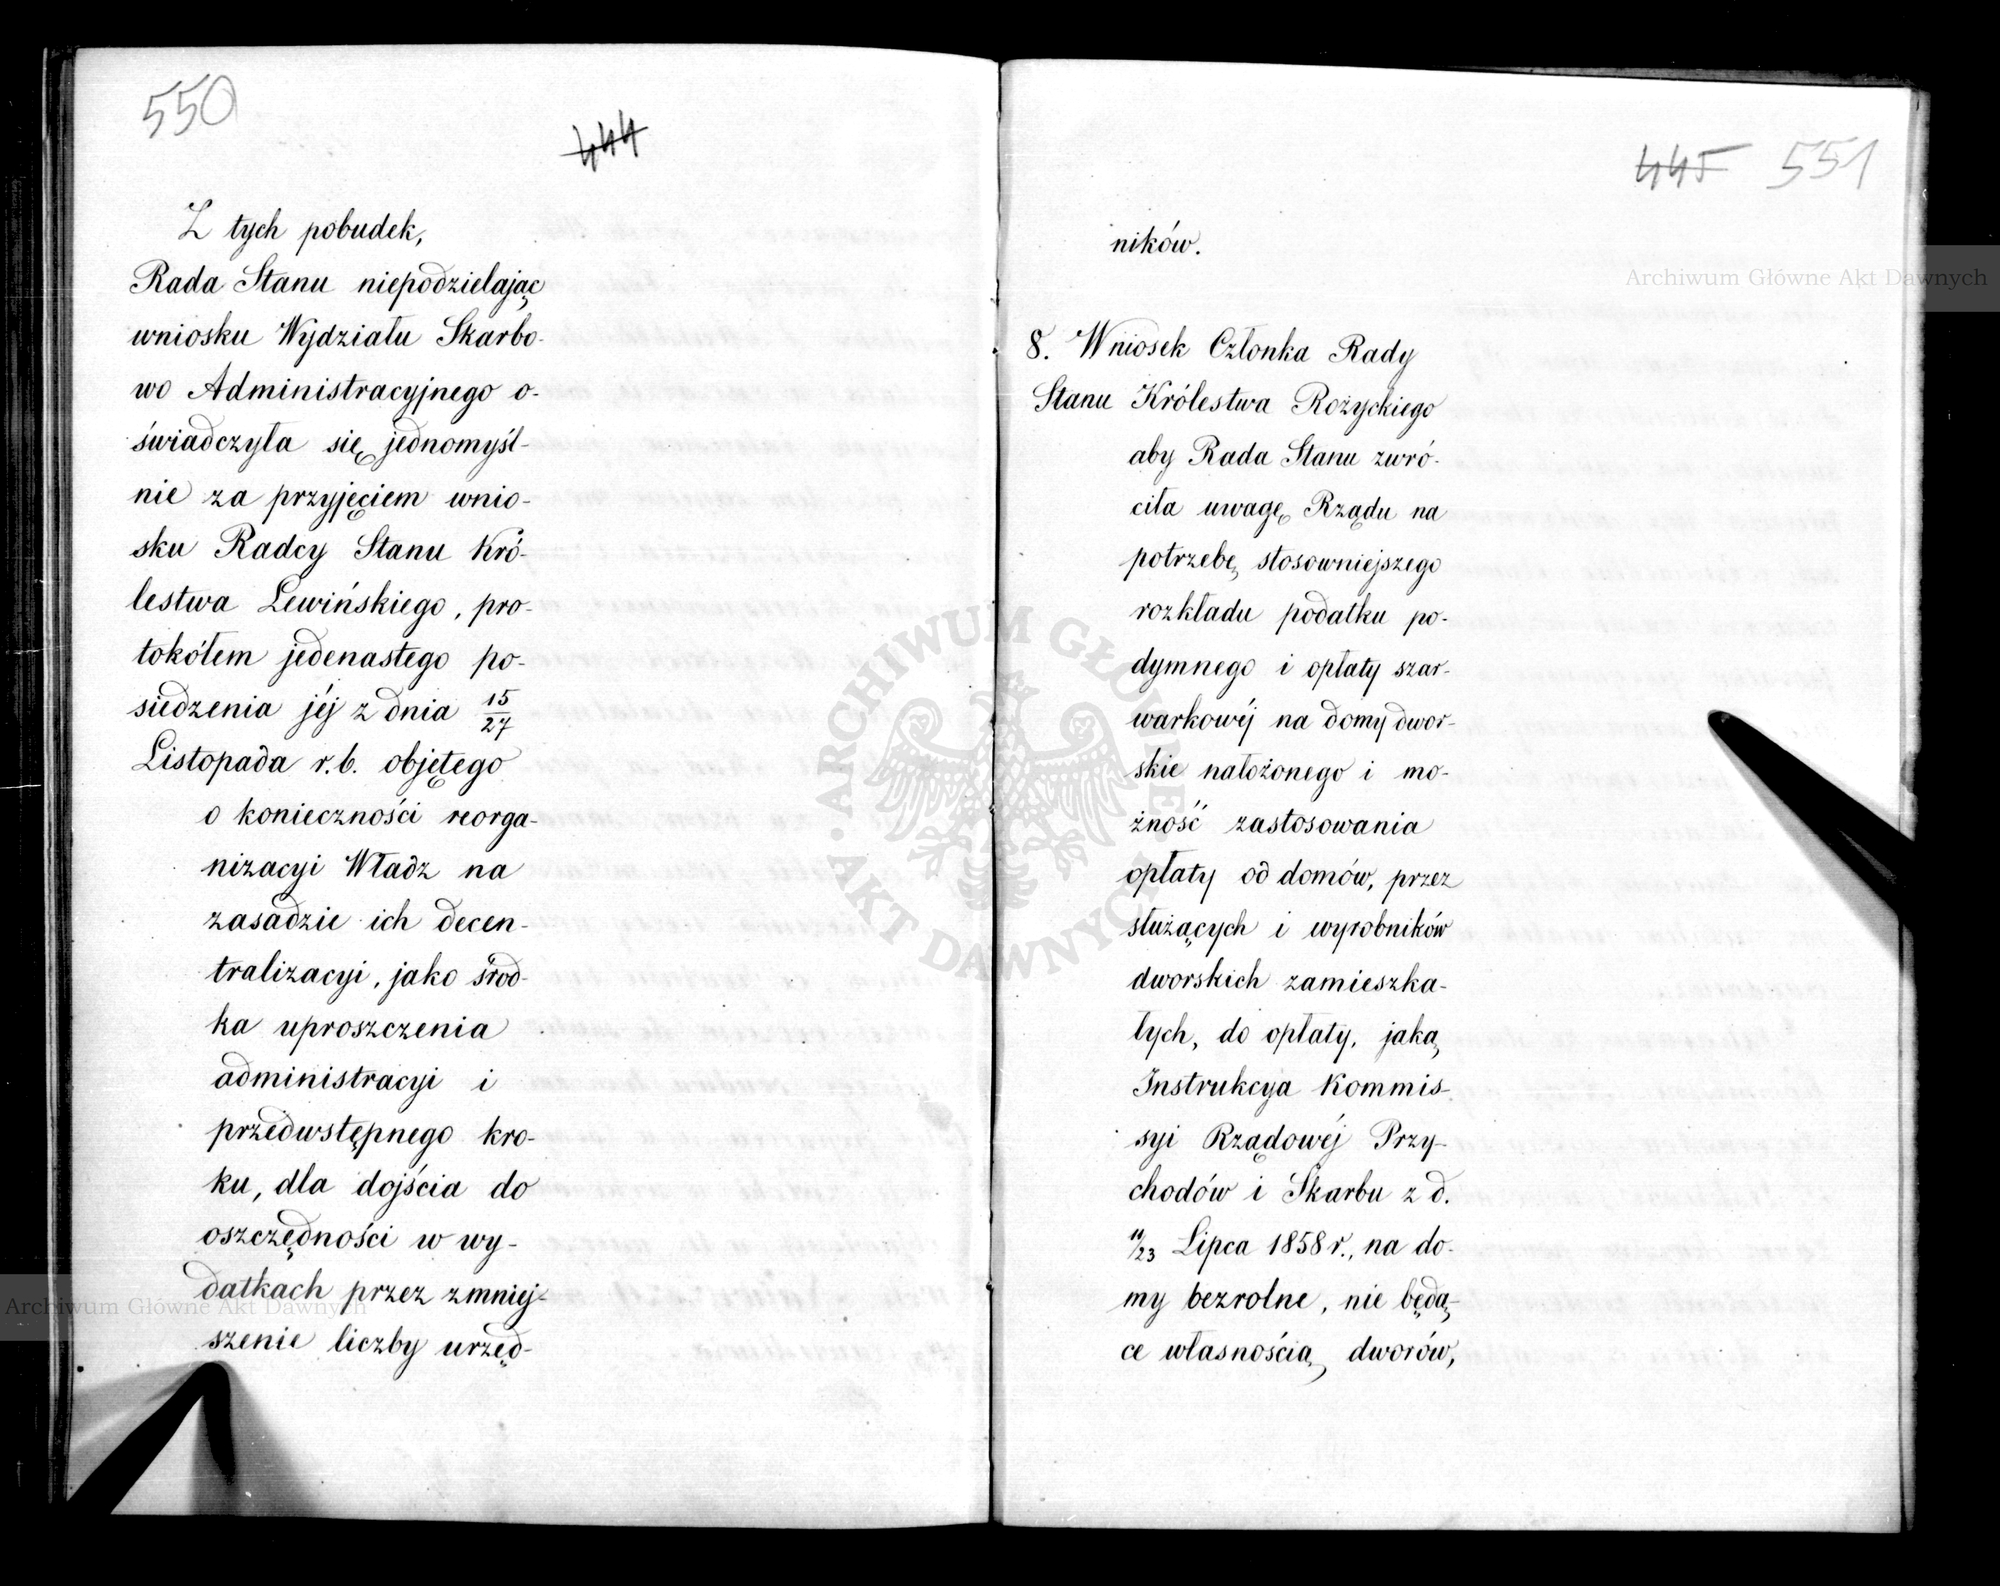 550
444
Z tych pobudek,
Rada Stanu niepodzielając
wniosku Wydziału Skarbo-
wo Administracyjnego o-
świadczyła się jednomyśl-
nie za przyjęciem wnio-
sku Radcy Stanu Kró-
lestwa Lewińskiego, pro-
tokółem jedenastego po-
siedzenia jéj z dnia 15/27
Listopada r. b. objętego
o konieczności reorga-
nizacyi Władz na
zasadzie ich decen-
tralizacyi, jako środ-
ka uproszczenia
administracyi i
przedwstępnego kro-
ku, dla dojścia do
oszczędności w wy-
datkach przez zmniej-
szenie liczby urzęd-
445 551
ników.
8. Wniosek Członka Rady
Stanu Królestwa Rożyckiego
aby Rada Stanu zwró-
ciła uwagę Rządu na
potrzebę stosowniejszego
rozkładu podatku po-
dymnego i opłaty szar-
warkowéj na domy dwor-
skie nałożonego i mo-
żność zastosowania
opłaty od domów, przez
służących i wyrobników
dworskich zamieszka-
łych, do opłaty, jaką
Instrukcya Kommis-
syi Rządowéj Przy-
chodów i Skarbu z d.
11/23 Lipca 1858 r., na do-
my bezrolne, nie będą-
ce własnością dworów,
Archiwum Główne Akt Dawnych
Archiwum Główne Akt Dawnych
ARCHIWUM GŁÓWNE AKT DAWNYCH